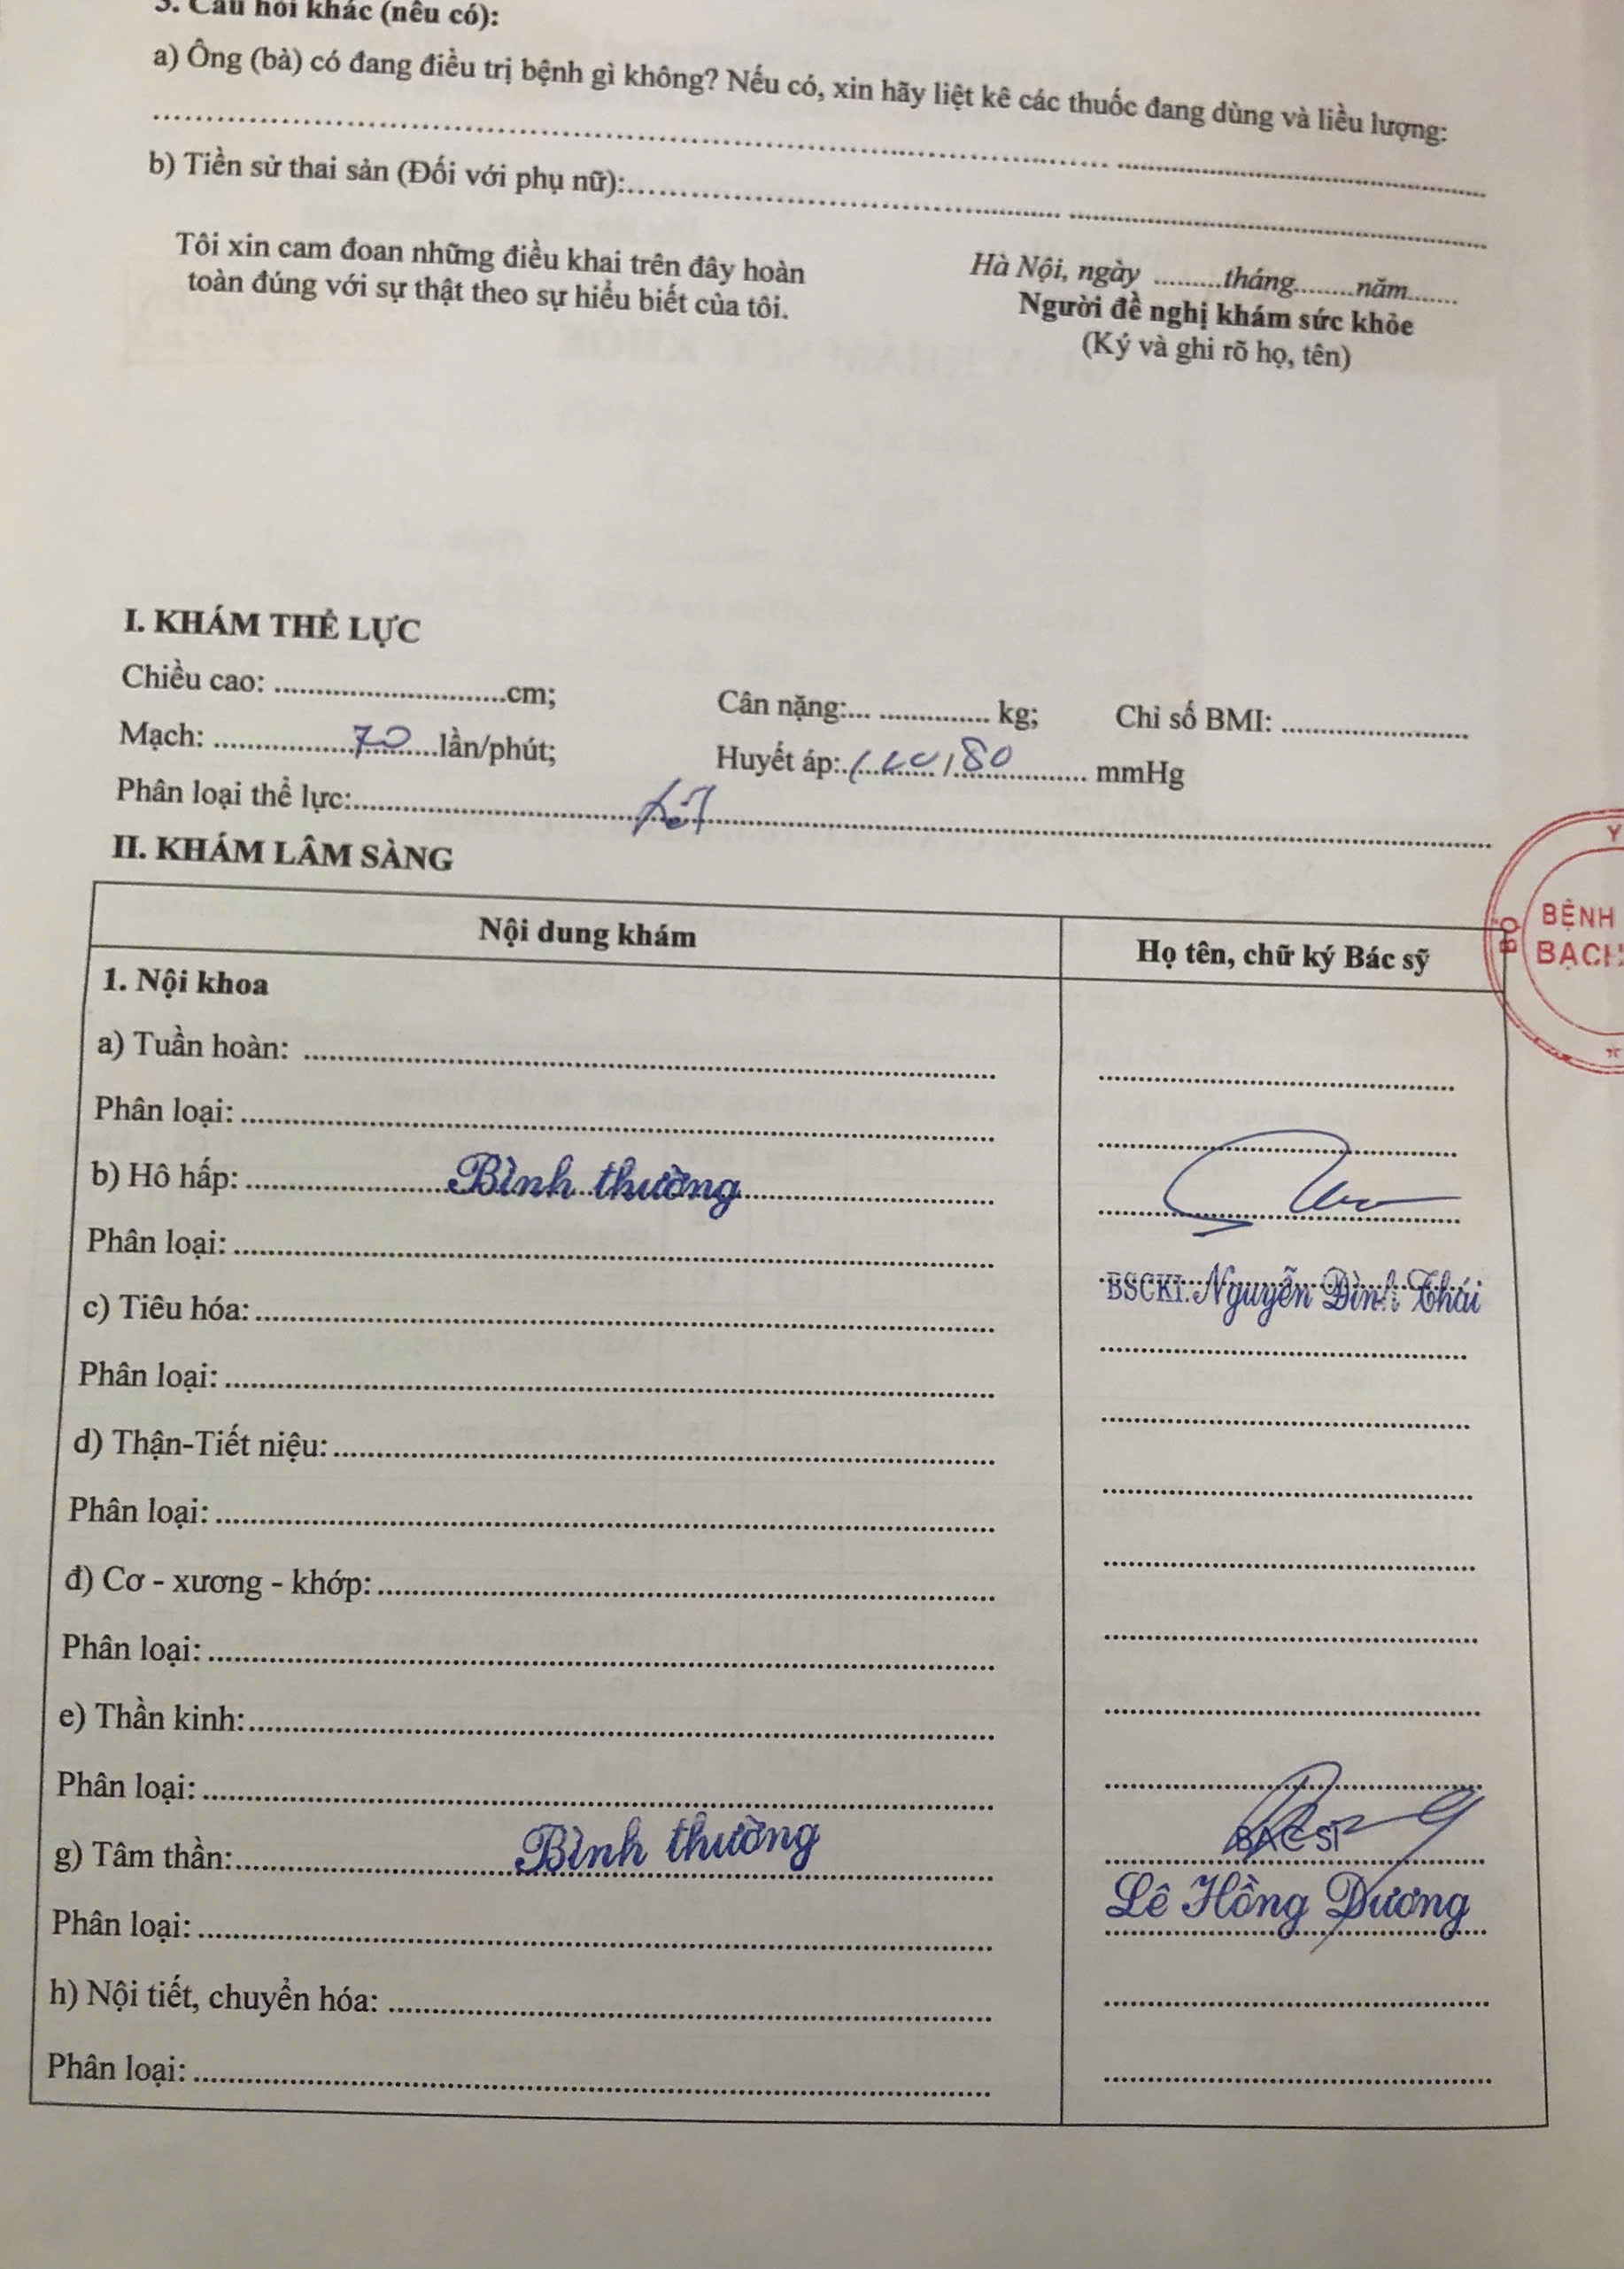 3. Câu hỏi khác (nếu có):
a) Ông (bà) có đang điều trị bệnh gì không? Nếu có, xin hãy liệt kê các thuốc đang dùng và liều lượng:
b) Tiền sử thai sản (Đối với phụ nữ):
Tôi xin cam đoan những điều khai trên đây hoàn
toàn đúng với sự thật theo sự hiểu biết của tôi.
Hà Nội, ngày .........tháng........năm.......
Người đề nghị khám sức khỏe
(Ký và ghi rõ họ, tên)
I. KHÁM THỂ LỰC
Chiều cao: ............................cm; Cân nặng:... .............. kg; Chỉ số BMI: .......................
Mạch: 70 lần/phút; Huyết áp: /80 mmHg
Phân loại thể lực:
II. KHÁM LÂM SÀNG
Nội dung khám Họ tên, chữ ký Bác sỹ
1. Nội khoa
a) Tuần hoàn:
Phân loại:
b) Hô hấp: Bình thường
Phân loại:
BSCKI. Nguyễn Đình Thái
c) Tiêu hóa:
Phân loại:
d) Thận-Tiết niệu:
Phân loại:
đ) Cơ - xương - khớp:
Phân loại:
e) Thần kinh:
Phân loại:
g) Tâm thần: Bình thường
BÁC SĨ
Lê Hồng Dương
Phân loại:
h) Nội tiết, chuyển hóa:
Phân loại:
BỘ Y
BỆNH
BẠCH